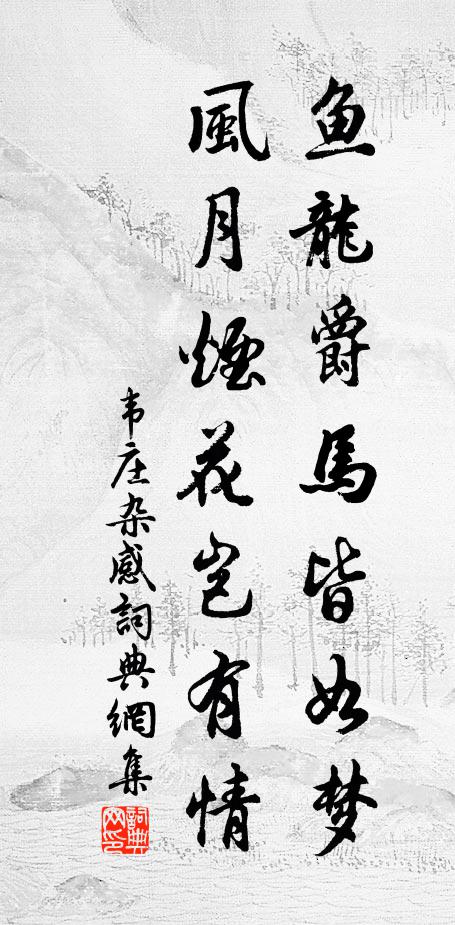 鱼龍爵馬皆如梦
風月煙花岂有情
韦庄杂感詞典網集
詞典
网印